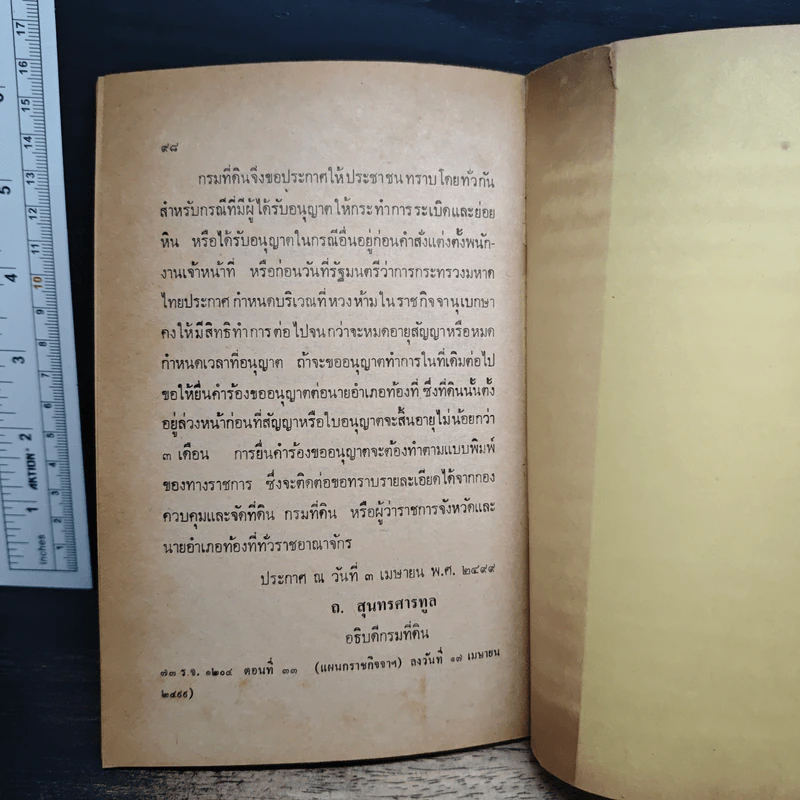 ๙๘
กรมที่ดินจึงขอประกาศให้ประชาชนทราบโดยทั่วกัน
สำหรับกรณีที่มีผู้ได้รับอนุญาตให้กระทำการระเบิดและย่อย
หิน หรือได้รับอนุญาตในกรณีอื่นอยู่ก่อนคำสั่งแต่งตั้งพนัก-
งานเจ้าหน้าที่ หรือก่อนวันที่รัฐมนตรีว่าการกระทรวงมหาด
ไทยประกาศกำหนดบริเวณที่หวงห้ามในราชกิจจานุเบกษา
คงให้มีสิทธิทำการต่อไปจนกว่าจะหมดอายุสัญญาหรือหมด
กำหนดเวลาที่อนุญาต ถ้าจะขออนุญาตทำการในที่เดิมต่อไป
ขอให้ยื่นคำร้องขออนุญาตต่อนายอำเภอท้องที่ ซึ่งที่ดินนั้นตั้ง
อยู่ล่วงหน้าก่อนที่สัญญาหรือใบอนุญาตจะสิ้นอายุไม่น้อยกว่า
๓ เดือน การยื่นคำร้องขออนุญาตจะต้องทำตามแบบพิมพ์
ของทางราชการ ซึ่งจะติดต่อขอทราบรายละเอียดได้จากกอง
ควบคุมและจัดที่ดิน กรมที่ดิน หรือผู้ว่าราชการจังหวัดและ
นายอำเภอท้องที่ทั่วราชอาณาจักร
ประกาศ ณ วันที่ ๓ เมษายน พ.ศ. ๒๔๙๙
ถ. สุนทรศารทูล
อธิบดีกรมที่ดิน
๗๓ ร.จ. ๑๒๐๔ ตอนที่ ๓๓ (แผนกราชกิจจาฯ) ลงวันที่ ๑๗ เมษายน
๒๔๙๙)
inches 1 2 3 4 5
AKTION
1 2 3 4 5 6 7 8 9 10 11 12 13 14 15 16 17